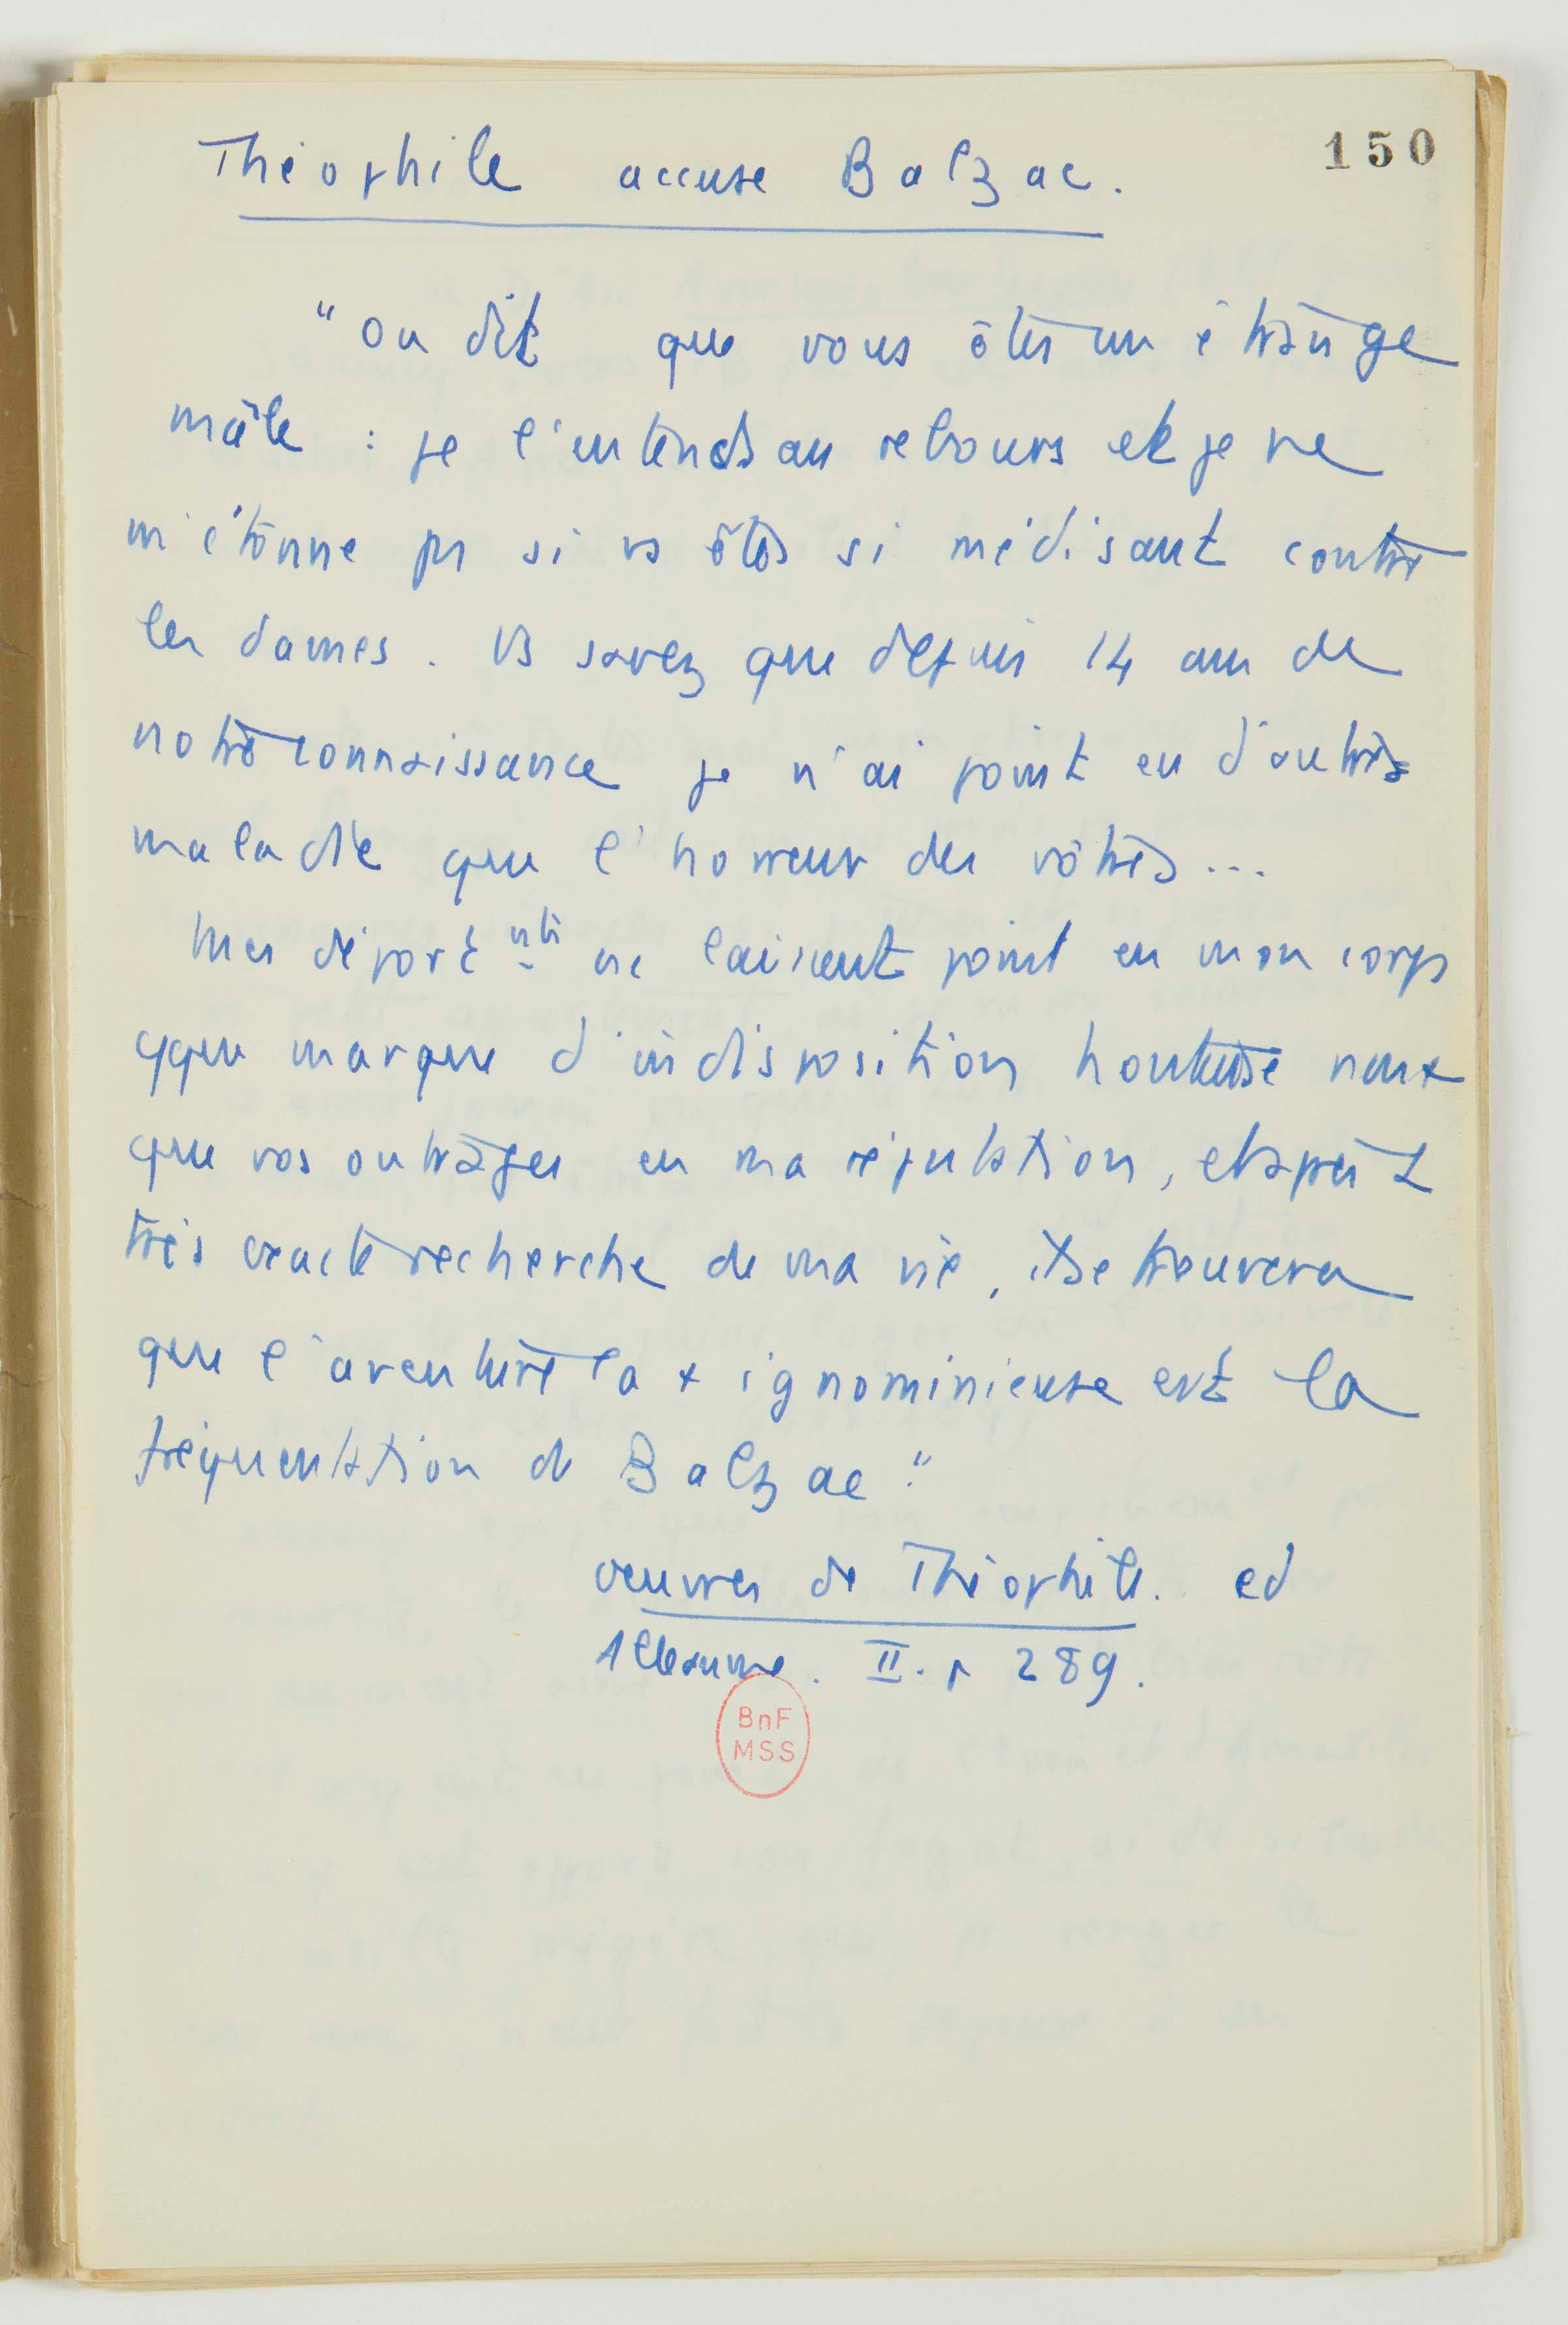 150
Théophile accuse Balzac.
"On dit que vous êtes un étrange
mâle : je l'entends au rebours et je ne
m'étonne ps si vs êtes si médisant contre
les dames. Vs savez que depuis 14 ans de
notre connaissance je n'ai point eu d'autres
maladie que l'horreur des vôtres...
Mes déportnts ne laissent point en mon corps
qque marque d'indisposition honteuse non +
que vos outrages en ma réputation, et après 1
très exacte recherche de ma vie, il se trouvera
que l'aventure la + ignominieuse est la
fréquentation de Balzac"
oeuvres de Théophile. ed
Alleaume. II. p 289.
BnF
MSS